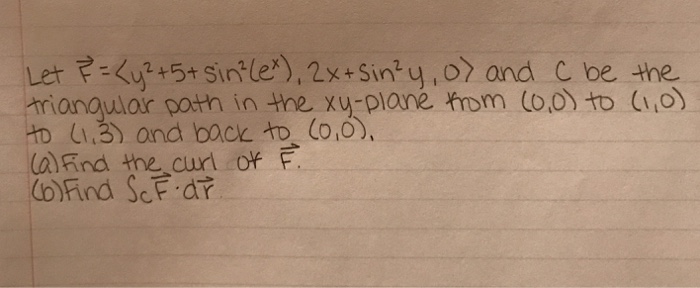 Let F⃗=<y²+5+sin²(eˣ), 2x+sin²y, 0> and C be the
triangular path in the xy-plane from (0,0) to (1,0)
to (1,3) and back to (0,0).
(a) Find the curl of F⃗.
(b) Find ∫c F⃗·dr⃗